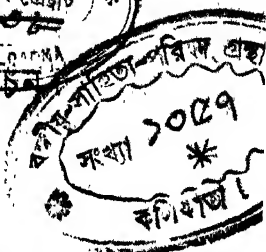 বঙ্গীয়-সাহিত্য-পরিষদ্ গ্রন্থা
সংখ্যা ১০৫৭
কলিকাতা।